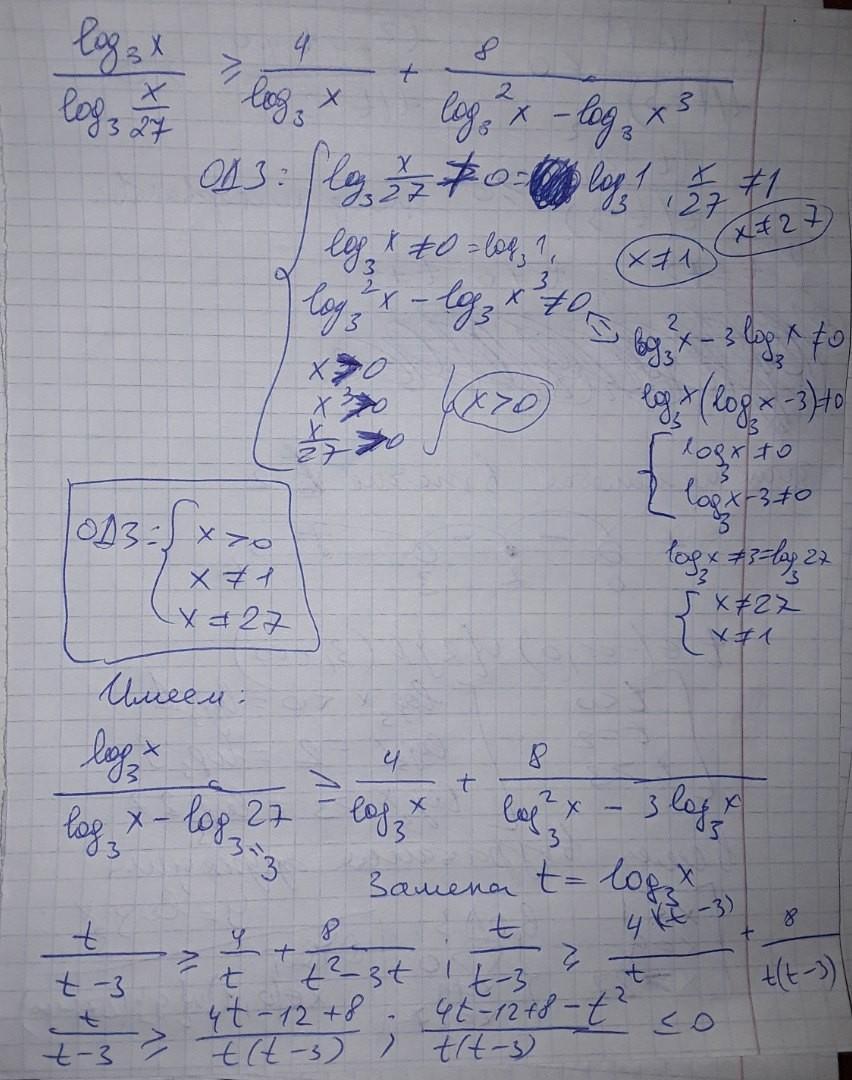 log₃x / log₃ x/27 ≥ 4 / log₃ x + 8 / log₃²x − log₃ x³
ОДЗ: { log₃ x/27 ≠ 0 = log₃ 1, x/27 ≠ 1
x ≠ 27
log₃ x ≠ 0 = log₃ 1, x ≠ 1
log₃² x − log₃ x³ ≠ 0 ⇔ log₃² x − 3 log₃ x ≠ 0
x > 0
x³ > 0
x/27 > 0 } x > 0
log₃ x (log₃ x − 3) ≠ 0
{ log₃ x ≠ 0
log₃ x − 3 ≠ 0
log₃ x ≠ 3 = log₃ 27
{ x ≠ 27
x ≠ 1
ОДЗ = { x > 0
x ≠ 1
x ≠ 27
Имеем:
log₃ x / log₃ x − log₃ 27 = 3 ≥ 4 / log₃ x + 8 / log₃² x − 3 log₃ x
Замена t = log₃ x
t / t − 3 ≥ 4 / t + 8 / t² − 3t ; t / t − 3 ≥ 4 (t − 3) / t + 8 / t(t − 3)
t / t − 3 ≥ 4t − 12 + 8 / t(t − 3) ; 4t − 12 + 8 − t² / t(t − 3) ≤ 0